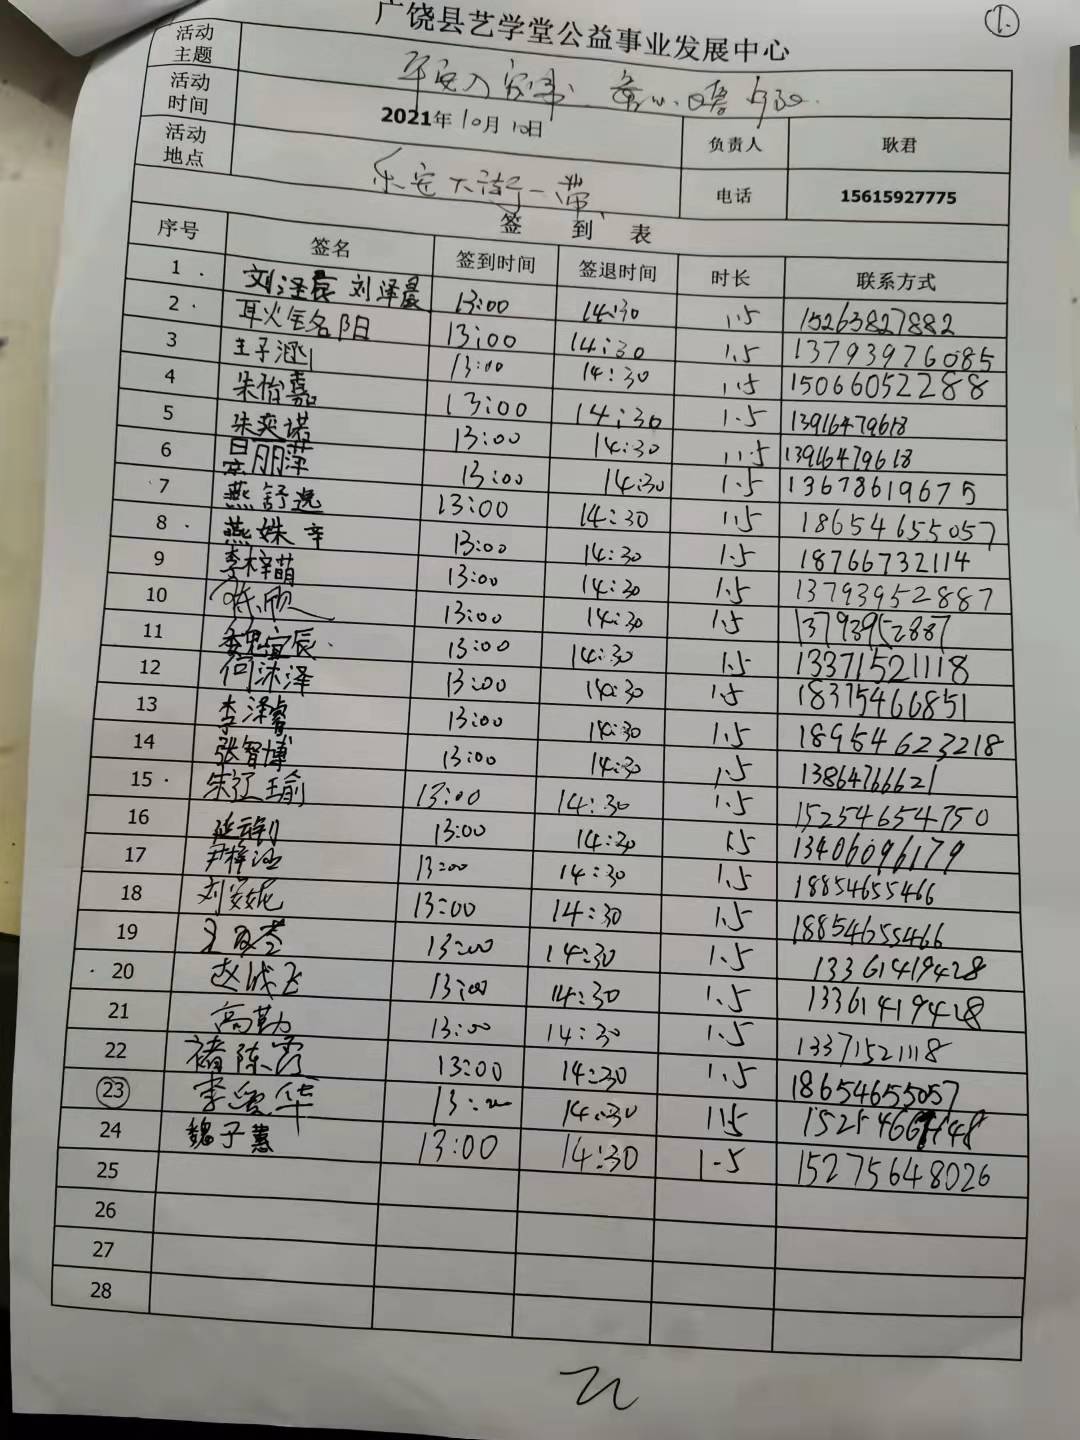 广饶县艺学堂公益事业发展中心
1.
活动主题 平安入
活动时间 2021年10月10日 负责人 耿君
活动地点 乐安大街一带 电话 15615927775
签 到 表
序号 签名 签到时间 签退时间 时长 联系方式
1 刘泽宸 刘泽晨 13:00 14:30 1.5 15263827882
2 耿铭阳 13:00 14:30 1.5 13793976085
3 王子涵 13:00 14:30 1.5 15066052288
4 朱怡嘉 13:00 14:30 1.5 13916479618
5 朱奕诺 13:00 14:30 1.5 13916479618
6 13:00 14:30 1.5 13678619675
7 燕舒逸 13:00 14:30 1.5 18654655057
8 燕姝辛 13:00 14:30 1.5 18766732114
9 李梓萌 13:00 14:30 1.5 13793952887
10 13:00 14:30 1.5 13793952887
11 魏宜辰 13:00 14:30 1.5 13371521118
12 何沐泽 13:00 14:30 1.5 18375466851
13 李泽睿 13:00 14:30 1.5 18954623218
14 张智博 13:00 14:30 1.5 13864766621
15 13:00 14:30 1.5 15254654750
16 13:00 14:30 1.5 13406096179
17 尹梓涵 13:00 14:30 1.5 18854655466
18 刘安妮 13:00 14:30 1.5 18854655466
19 13:00 14:30 1.5 13361419428
20 赵成飞 13:00 14:30 1.5 13361419428
21 高勤 13:00 14:30 1.5 13371521118
22 褚陈霞 13:00 14:30 1.5 18654655057
23 李爱华 13:00 14:30 1.5
24 魏子薰 13:00 14:30 1.5 15275648026
25
26
27
28